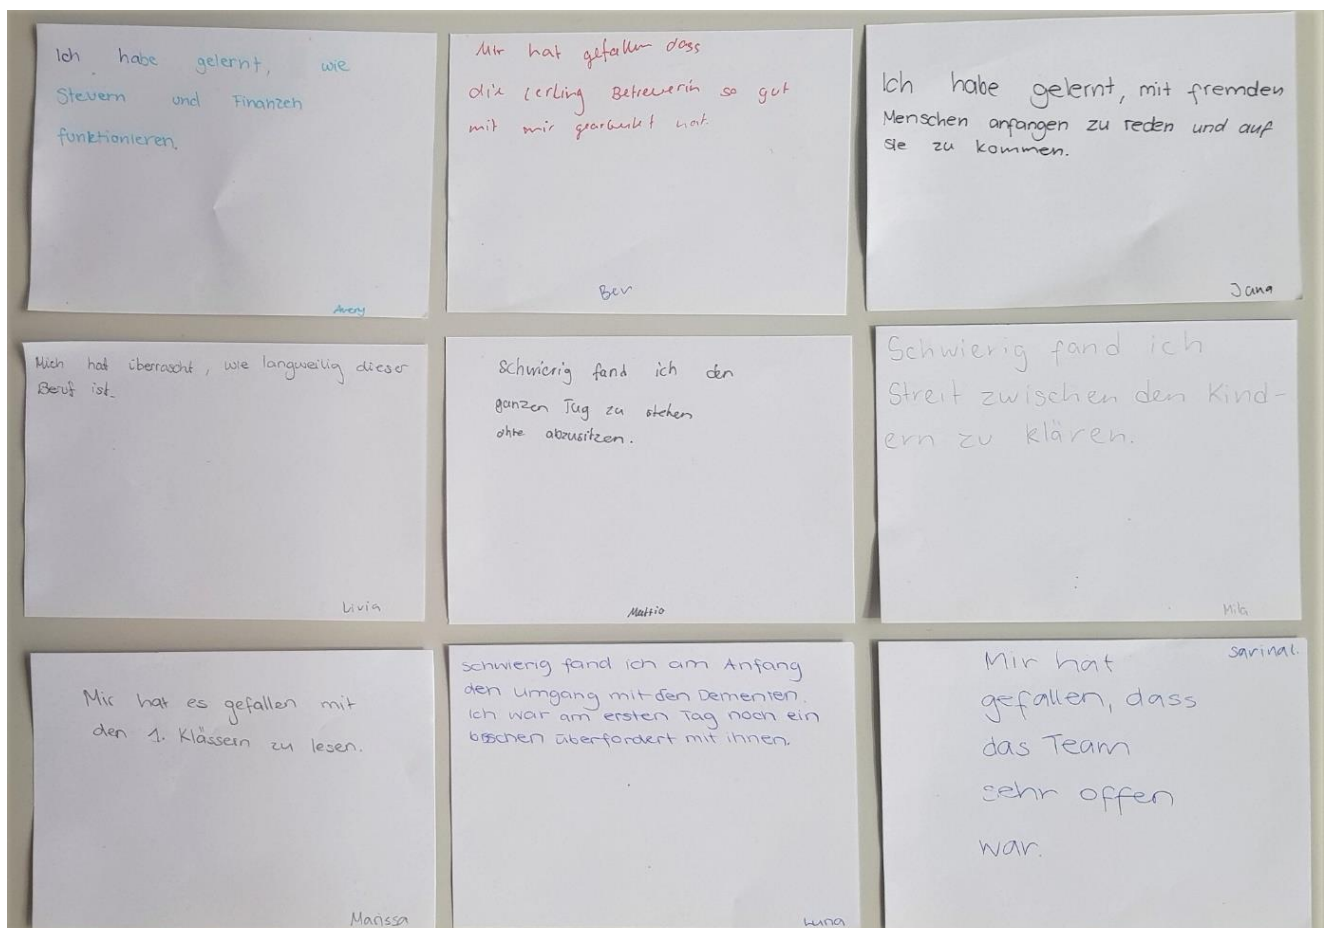 Ich habe gelernt, wie
Steuern und Finanzen
funktionieren.
Avery
Mir hat gefallen dass
die lerling Betreuerin so gut
mit mir gearbeitet hat.
Bev
Ich habe gelernt, mit fremden
Menschen anfangen zu reden und auf
sie zu kommen.
Jana
Mich hat überrascht, wie langweilig dieser
Beruf ist.
Livia
Schwierig fand ich den
ganzen Tag zu stehen
ohne abzusitzen.
Mattio
Schwierig fand ich
Streit zwischen den Kind-
ern zu klären.
Mir hat es gefallen mit
den 1. Klässern zu lesen.
Marissa
schwierig fand ich am Anfang
den umgang mit den Dementen.
Ich war am ersten Tag noch ein
bisschen überfordert mit ihnen.
Luna
sarinal.
Mir hat
gefallen, dass
das Team
sehr offen
war.